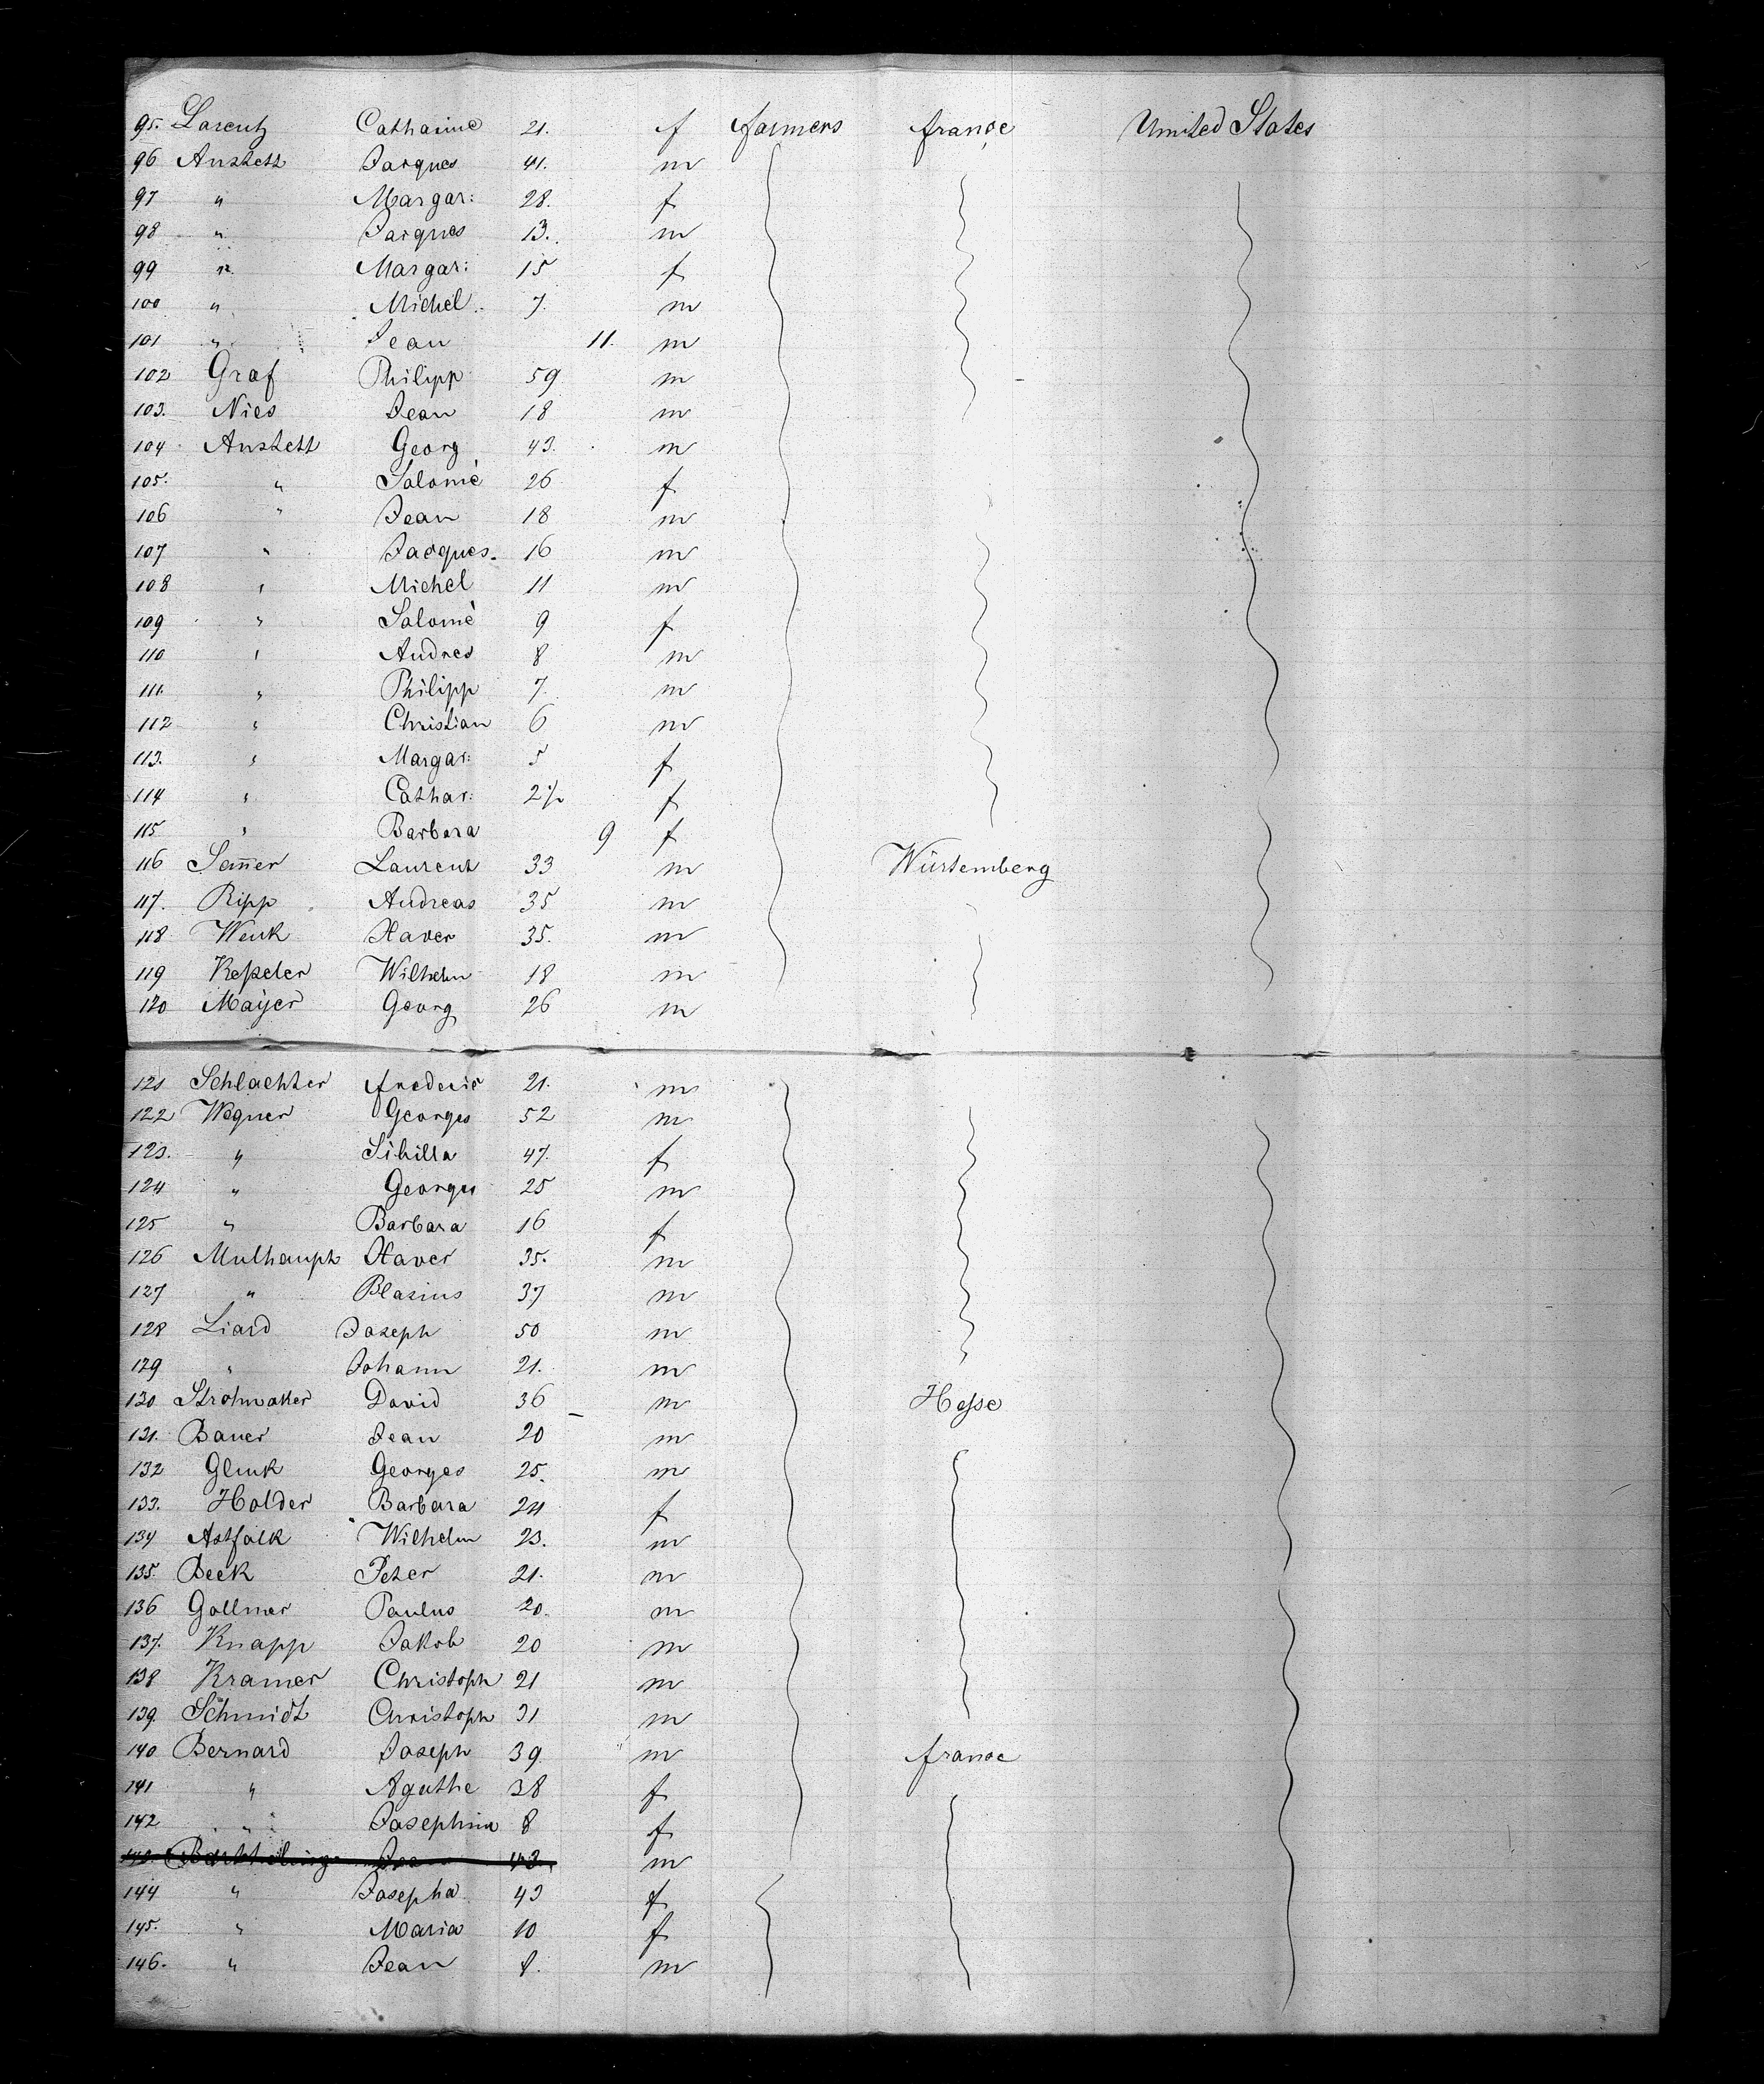 95. Larentz Catharine 21. f farmers france United States
96 Anstett Jacques 41. m
97 " Margar: 28. f
98 " Jacques 13. m
99 " Margar: 15 f
100 " Michel 7. m
101 " Jean 11. m
102 Graf Philipp 59 m
103. Nies Jean 18 m
104 Anstett Georg 43. m
105. " Salomè 26 f
106 " Jean 18 m
107 " Jacques 16 m
108 " Michel 11 m
109 " Salomè 9 f
110 " Andres 8 m
111. " Philipp 7. m
112 " Christian 6 m
113. " Margar: 5 f
114 " Cathar: 2 1/2 f
115 " Barbara 9 f
116 Sem̄er Laurent 33 m Würtemberg
117. Ripp Andreas 35 m
118 Wenk Xaver 35. m
119 Keßeler Wilhelm 18 m
120 Mayer Georg 26 m
121 Schlachter frederic 21. m
122 Wagner Georges 52 m
123. " Sibilla 47. f
124 " Georges 25 m
125 " Barbara 16 f
126 Mulhaupt Xaver 35. m
127 " Blasius 37 m
128 Liard Joseph 50 m
129 " Johann 21. m
130 Strohmaker David 36 m Hesse
131. Bauer Jean 20 m
132 Gluck Georges 25. m
133. Holder Barbara 24 f
134 Astfalk Wilhelm 23. m
135. Beek Peter 21. m
136 Gollmer Paulus 20. m
137. Knapp Jakob 20 m
138 Kramer Christoph 21 m
139. Schmidt Christoph 31 m
140 Bernard Joseph 39. m france
141 " Agathe 38 f
142 " Josephina 8 f
143. m
144 " Josepha 43 f
145. " Maria 10 f
146. " Jean 8. m